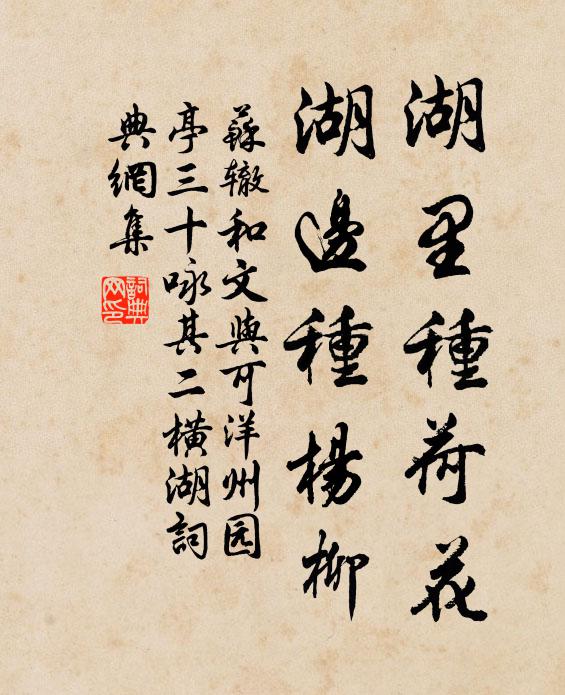 湖里種荷花
湖邊種楊柳
蘇轍和文與可洋州园
亭三十咏其二橫湖詞
典網集
詞典
网印